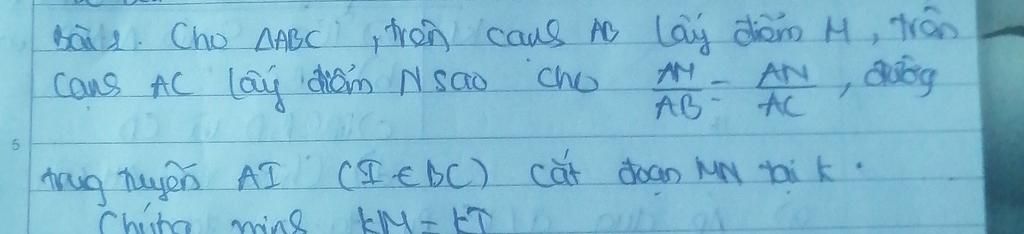 Bài 1. Cho ΔABC, trên cạnh AB lấy điểm M, trên
cạnh AC lấy điểm N sao cho AM/AB = AN/AC, đường
trung tuyến AI (I ∈ BC) cắt đoạn MN tại K.
Chứng minh KM = KI